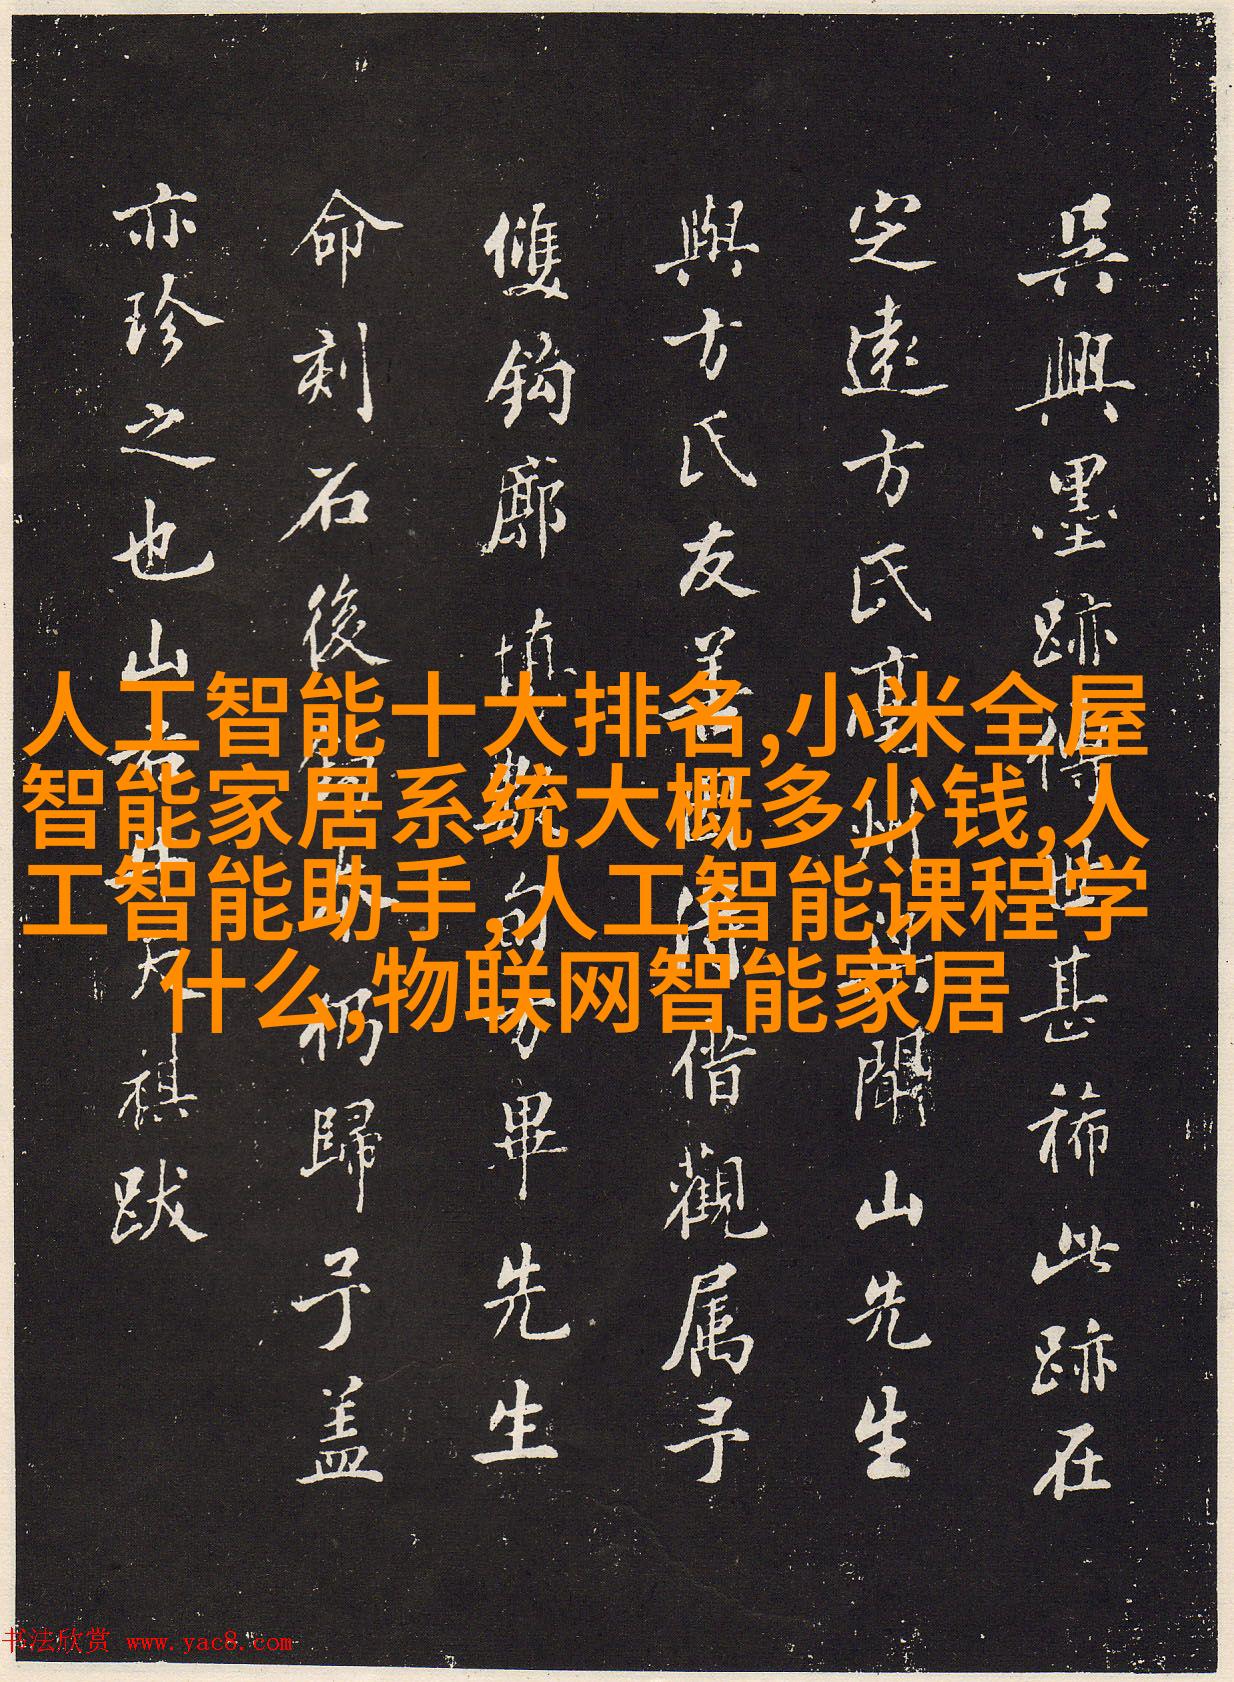 吳興墨跡傳世甚稀此跡在
定遠方氏亳州梁聞山先生
與方氏友善因得借觀属予
雙鈎廓填
畢先生
命刻石後
歸予盖
亦珍之也山右
祺跋
人工智能十大排名,小米全屋
智能家居系统大概多少钱,人
工智能助手,人工智能课程学
什么,物联网智能家居
书法欣赏 www.yac8.com